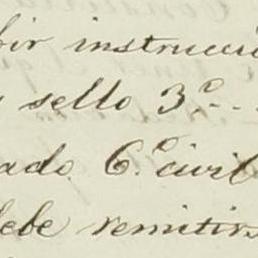 bir instrucci
sello 3º...
ado 6º civil
ebe remitirs